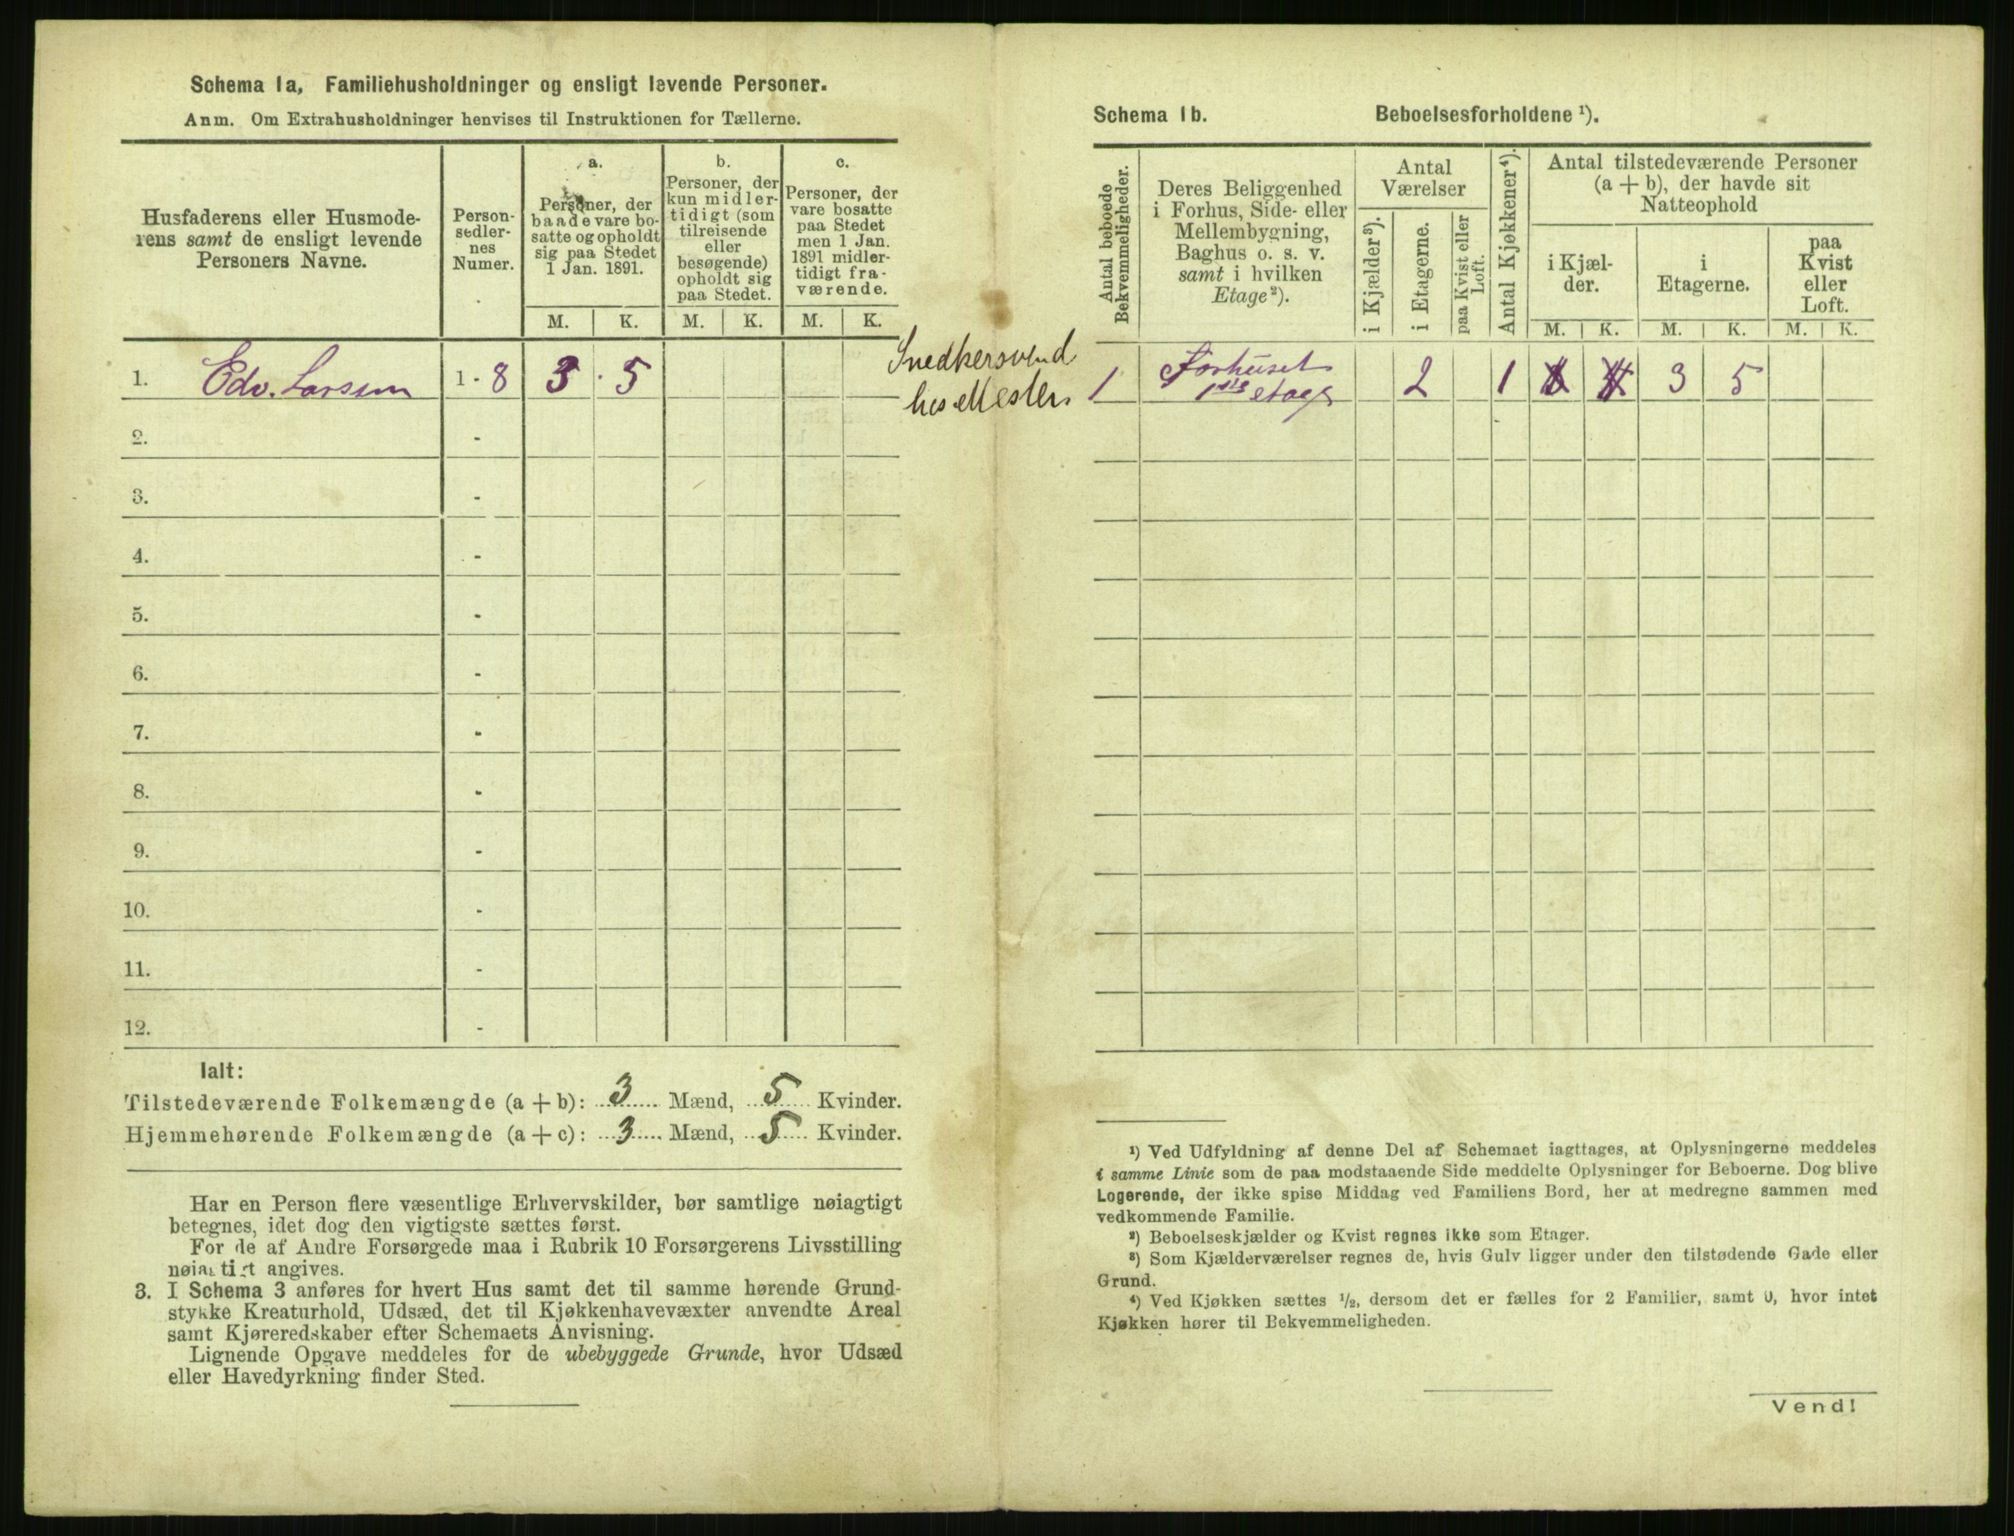 Schema 1a, Familiehusholdninger og ensligt levende Personer.
Anm. Om Extrahusholdninger henvises til Instruktionen for Tællerne.
Husfaderens eller Husmode-
rens samt de ensligt levende
Personers Navne.
Person-
sedler-
nes
Numer.
a.
Personer, der
baade vare bo-
satte og opholdt
sig paa Stedet
1 Jan. 1891.
b.
Personer, der
kun midler-
tidigt (som
tilreisende
eller
besøgende)
opholdt sig
paa Stedet.
c.
Personer, der
vare bosatte
paa Stedet
men 1 Jan.
1891 midler-
tidigt fra-
værende.
M. K. M. K. M. K.
1. Edv. Larssen 1 - 8 3 5
Snedkersvend
hos Mester
2. -
3. -
4. -
5. -
6. -
7. -
8. -
9. -
10. -
11. -
12. -
Ialt:
Tilstedeværende Folkemængde (a + b): 3 Mænd, 5 Kvinder.
Hjemmehørende Folkemængde (a + c): 3 Mænd, 5 Kvinder.
Har en Person flere væsentlige Erhvervskilder, bør samtlige nøiagtigt
betegnes, idet dog den vigtigste sættes først.
For de af Andre Forsørgede maa i Rubrik 10 Forsørgerens Livsstilling
nøiagtigt angives.
3. I Schema 3 anføres for hvert Hus samt det til samme hørende Grund-
stykke Kreaturhold, Udsæd, det til Kjøkkenhavevæxter anvendte Areal
samt Kjøreredskaber efter Schemaets Anvisning.
Lignende Opgave meddeles for de ubebyggede Grunde, hvor Udsæd
eller Havedyrkning finder Sted.
Schema 1b. Beboelsesforholdene ¹).
Antal beboede
Bekvemmeligheder.
Deres Beliggenhed
i Forhus, Side- eller
Mellembygning,
Baghus o. s. v.
samt i hvilken
Etage ²).
Antal
Værelser
i Kjælder ³).
i Etagerne.
paa Kvist eller
Loft.
Antal Kjøkkener ⁴).
Antal tilstedeværende Personer
(a + b), der havde sit
Natteophold
i Kjæl-
der.
i
Etagerne.
paa
Kvist
eller
Loft.
M. K. M. K. M. K.
1 Forhuset
1ste etage 2 1 3 5
¹) Ved Udfyldning af denne Del af Schemaet iagttages, at Oplysningerne meddeles
i samme Linie som de paa modstaaende Side meddelte Oplysninger for Beboerne. Dog blive
Logerende, der ikke spise Middag ved Familiens Bord, her at medregne sammen med
vedkommende Familie.
²) Beboelseskjælder og Kvist regnes ikke som Etager.
³) Som Kjælderværelser regnes de, hvis Gulv ligger under den tilstødende Gade eller
Grund.
⁴) Ved Kjøkken sættes ½, dersom det er fælles for 2 Familier, samt 0, hvor intet
Kjøkken hører til Bekvemmeligheden.
Vend!